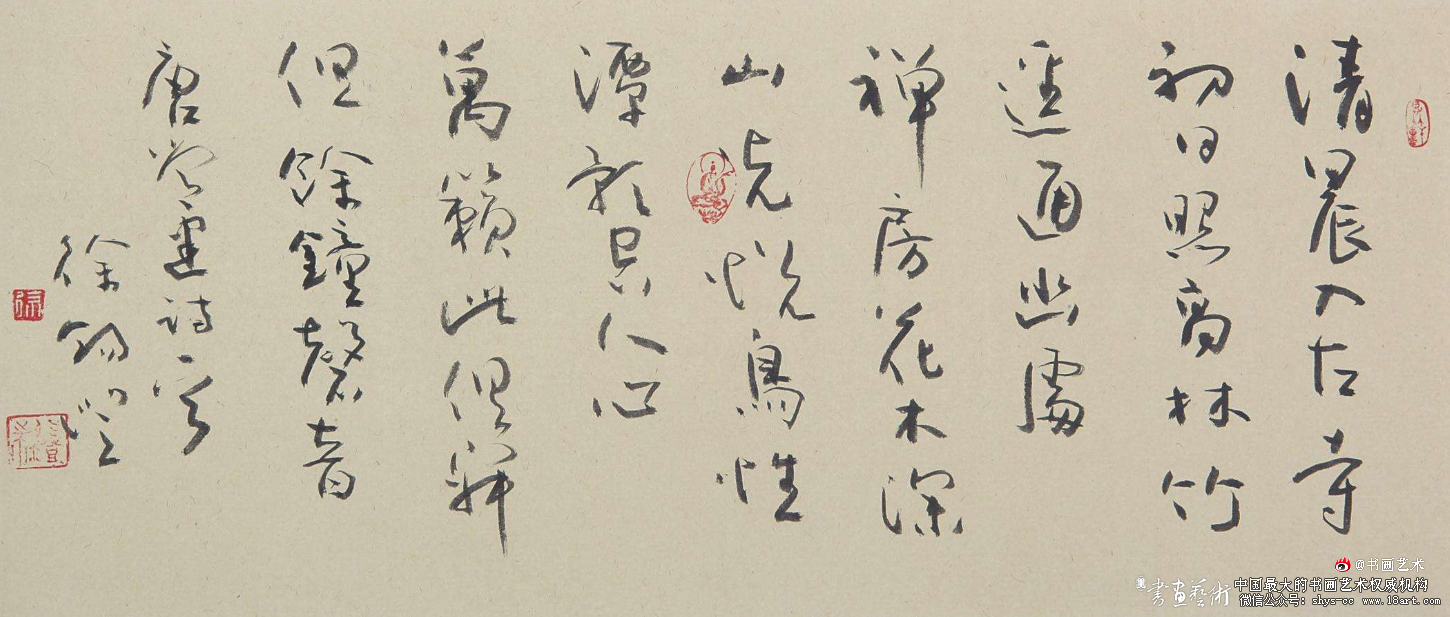 清晨入古寺
初日照高林竹
逕通幽處
禅房花木深
山光悦鳥性
潭影空人心
萬籟此俱寂
但餘鐘磬音
唐常建詩一首
徐錫澄
@书画艺术
書畫藝術
中国最大的书画艺术权威机构
微信公众号：shys-cc www.18art.com